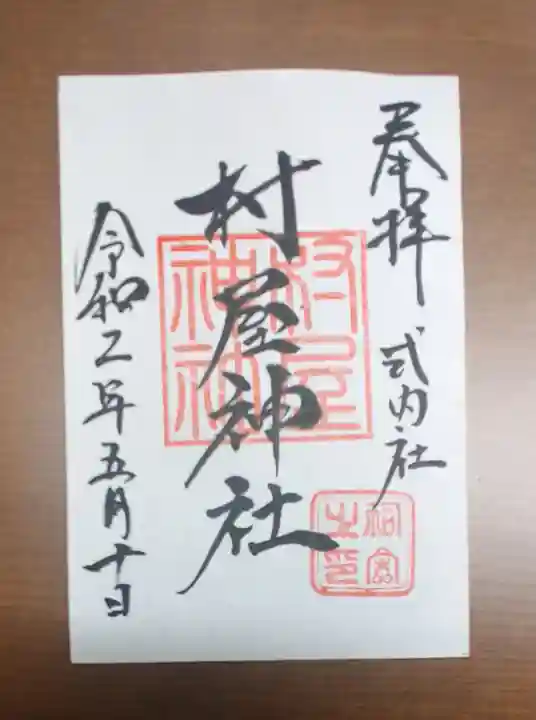 奉拝
式内社
村屋神社
村屋神社
令和二年五月十日